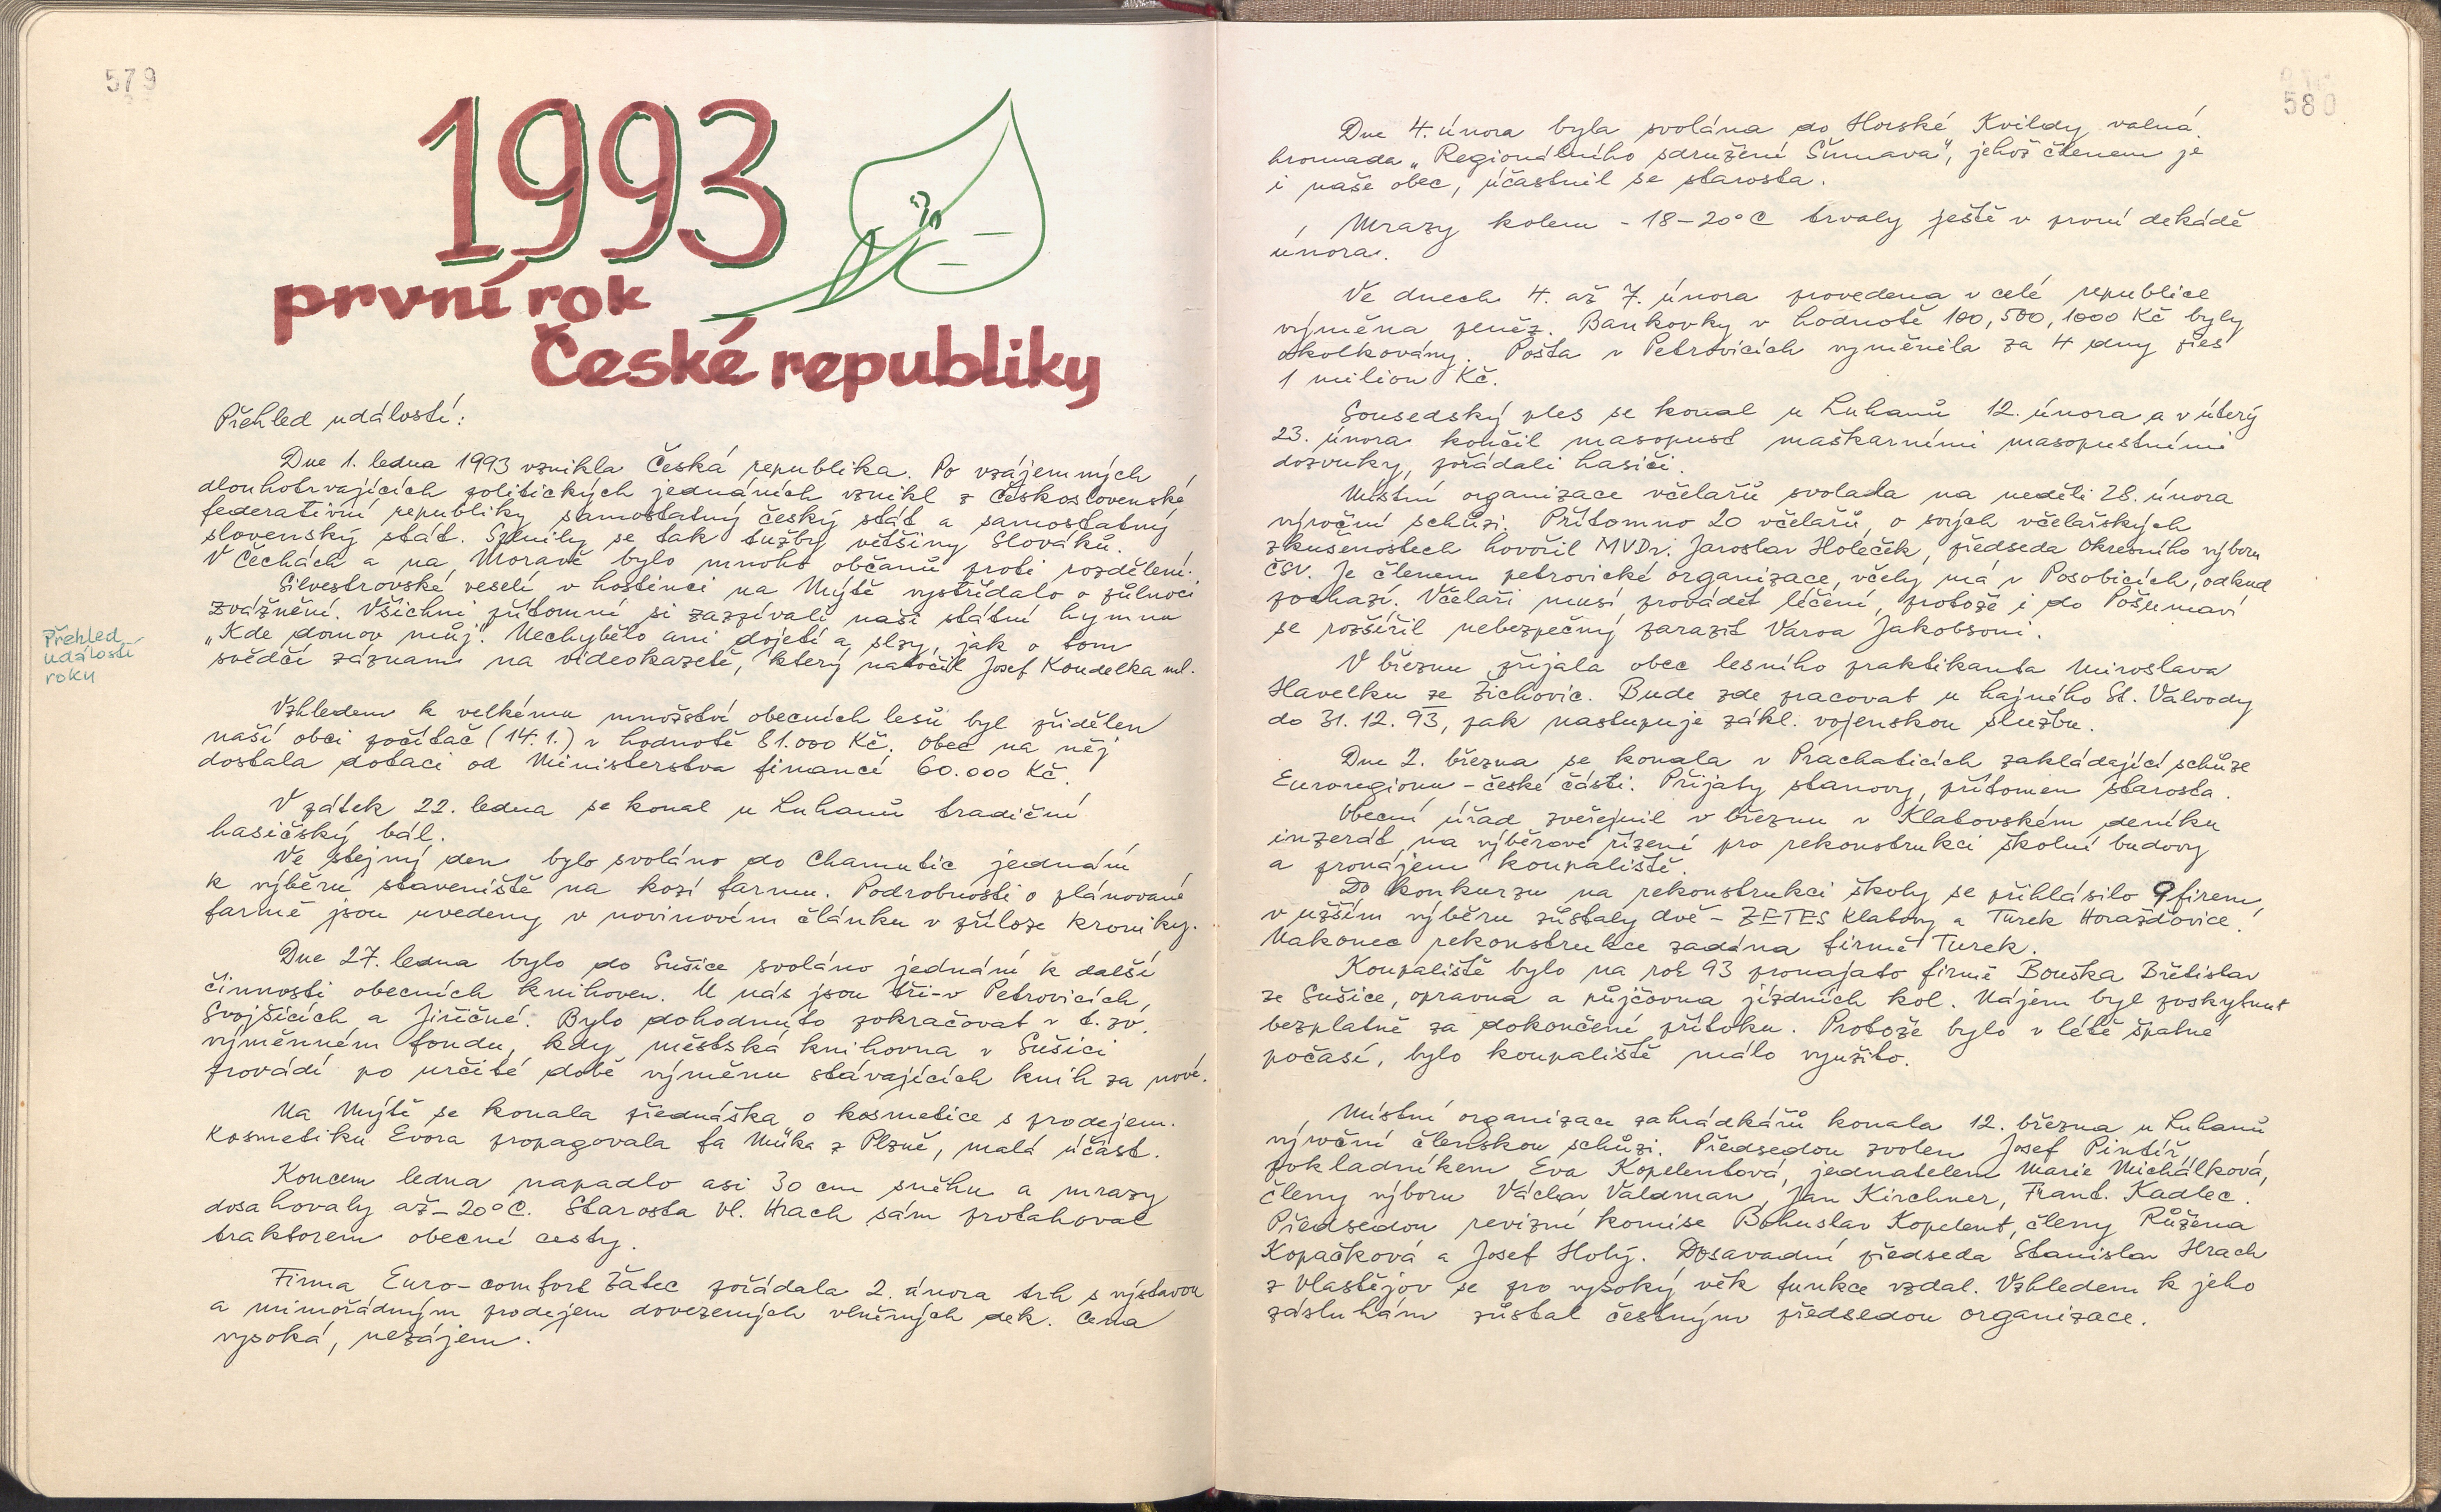 579
1993
první rok
České republiky
Přehled událostí:
Přehled
událostí
roku
Dne 1. ledna 1993 vznikla Česká republika. Po vzájemných
dlouhotrvajících politických jednáních vznikl z Československé
federativní republiky samostatný český stát a samostatný
slovenský stát. Splnily se tak tužby většiny Slováků.
V Čechách a na Moravě bylo mnoho občanů proti rozdělení.
Silvestrovské veselí v hostinci na Mýtě vystřídalo o půlnoci
zvážnění. Všichni přítomní si zazpívali naši státní hymnu
"Kde domov můj". Nechybělo ani dojetí a slzy, jak o tom
svědčí záznam na videokazetě, který natočil Josef Koudelka ml.
Vzhledem k velkému množství obecních lesů byl přidělen
naší obci počítač (14.1.) v hodnotě 81.000 Kč. Obec na něj
dostala dotaci od Ministerstva financí 60.000 Kč.
V pátek 22. ledna se konal u Luhanů tradiční
hasičský bál.
Ve stejný den bylo svoláno do Chamutic jednání
k výběru staveniště na kozí farmu. Podrobnosti o plánované
farmě jsou uvedeny v novinovém článku v příloze kroniky.
Dne 27. ledna bylo do Sušice svoláno jednání k další
činnosti obecních knihoven. U nás jsou tři-v Petrovicích,
Svojšicích a Jiřičné. Bylo dohodnuto pokračovat v t.zv.
výměnném fondu, kdy městská knihovna v Sušici
provádí po určité době výměnu stávajících knih za nové.
Na Mýtě se konala přednáška o kosmetice s prodejem.
Kosmetiku Evora propagovala fa Müka z Plzně, malá účast.
Koncem ledna napadlo asi 30 cm sněhu a mrazy
dosahovaly až -20°C. Starosta Vl. Hrach sám protahoval
traktorem obecné cesty.
Firma Euro-comfort Žatec pořádala 2. února trh s výstavou
a mimořádným prodejem dovezených vlněných dek. Cena
vysoká, nezájem.
580
Dne 4. února byla svolána do Horské Kvildy valná
hromada "Regionálního sdružení Šumava", jehož členem je
i naše obec, účastnil se starosta.
Mrazy kolem -18-20°C trvaly ještě v první dekádě
února.
Ve dnech 4. až 7. února provedena v celé republice
výměna peněz. Bankovky v hodnotě 100, 500, 1000 Kč byly
okolkovány. Pošta v Petrovicích vyměnila za 4 dny přes
1 milion Kč.
Sousedský ples se konal u Luhanů 12. února a v úterý
23. února končil masopust maškarními masopustními
dozvuky, pořádali hasiči.
Místní organizace včelařů svolala na neděli 28. února
výroční schůzi. Přítomno 20 včelařů, o svých včelařských
zkušenostech hovořil MVDr. Jaroslav Holeček, předseda Okresního výboru
ČSV. Je členem petrovické organizace, včely má v Posobicích, odkud
pochází. Včelaři musí provádět léčení, protože i do Pošumaví
se rozšířil nebezpečný parazit Varoa Jakobsoni.
V březnu přijala obec lesního praktikanta Miroslava
Havelku ze Žichovic. Bude zde pracovat u hajného St. Valvody
do 31. 12. 93, pak nastupuje zákl. vojenskou službu.
Dne 2. března se konala v Prachaticích zakládající schůze
Euroregionu - české části. Přijaty stanovy, přítomen starosta.
Obecní úřad zveřejnil v březnu v Klatovském deníku
inzerát na výběrové řízení pro rekonstrukci školní budovy
a pronájem koupaliště.
Do konkurzu na rekonstrukci školy se přihlásilo 9 firem,
v užším výběru zůstaly dvě - ZETES Klatovy a Turek Horažďovice.
Nakonec rekonstrukce zadána firmě Turek.
Koupaliště bylo na rok 93 pronajato firmě Bouška Břetislav
ze Sušice, opravna a půjčovna jízdních kol. Nájem byl poskytnut
bezplatně za dokončení přítoku. Protože bylo v létě špatné
počasí, bylo koupaliště málo využito.
Místní organizace zahrádkářů konala 12. března u Luhanů
výroční členskou schůzi. Předsedou zvolen Josef Pintíř,
pokladníkem Eva Kopelentová, jednatelem Marie Michálková,
členy výboru Václav Valdman, Jan Kirchner, Frant. Kadlec.
Předsedou revizní komise Bohuslav Kopelent, členy Růžena
Kopačková a Josef Holý. Dosavadní předseda Stanislav Hrach
z Vlastějov se pro vysoký věk funkce vzdal. Vzhledem k jeho
zásluhám zůstal čestným předsedou organizace.